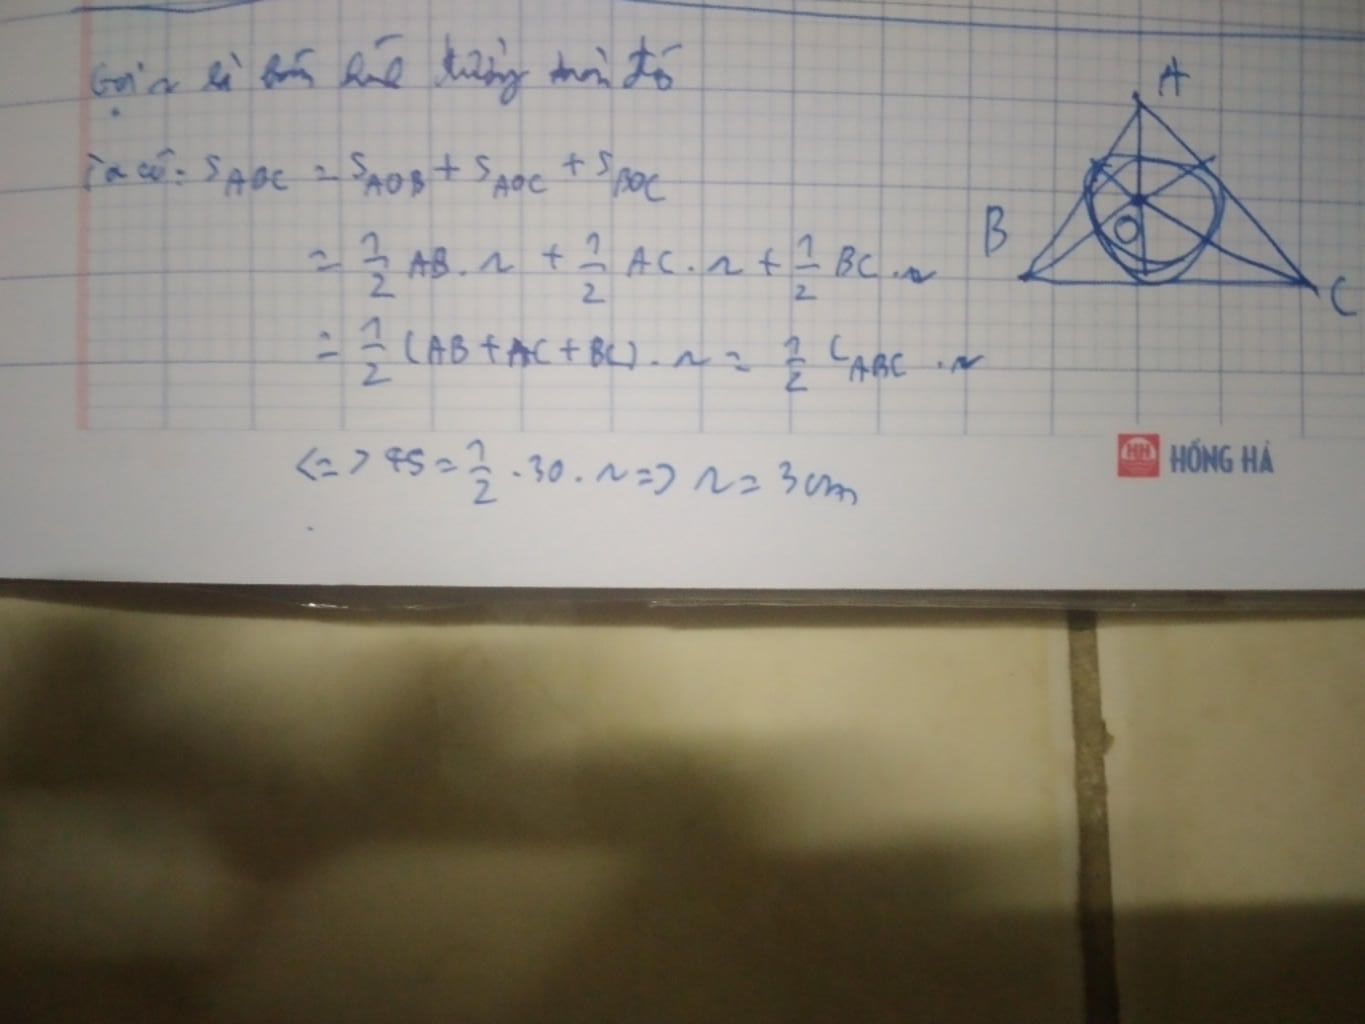 Gọi r là bán kính đường tròn đó
Ta có: S_ABC = S_AOB + S_AOC + S_BOC
= 1/2 AB . r + 1/2 AC . r + 1/2 BC . r
= 1/2 (AB + AC + BC) . r = 1/2 C_ABC . r
<=> 45 = 1/2 . 30 . r => r = 3cm
A
B
O
C
HH HỒNG HÀ